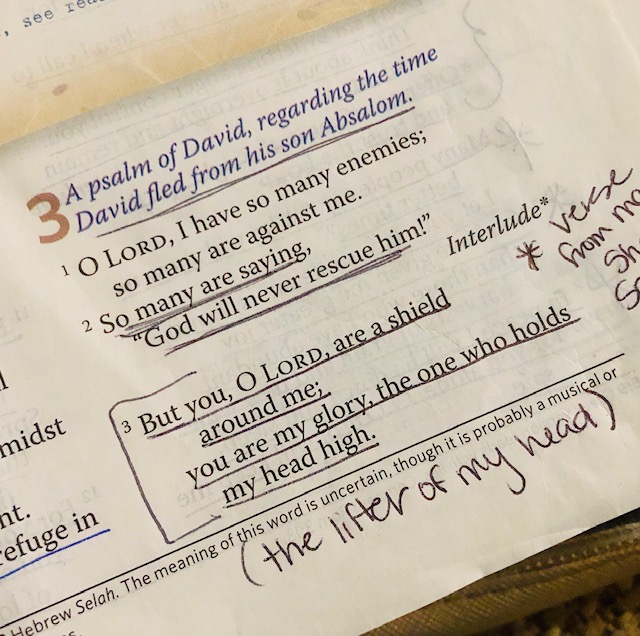 , see
A psalm of David, regarding the time
3 David fled from his son Absalom.
1 O LORD, I have so many enemies;
so many are against me.
2 So many are saying,
“God will never rescue him!” Interlude*
* verse
from
3 But you, O LORD, are a shield
around me;
you are my glory, the one who holds
my head high.
midst
nt.
refuge in
Hebrew Selah. The meaning of this word is uncertain, though it is probably a musical or
(the lifter of my head)